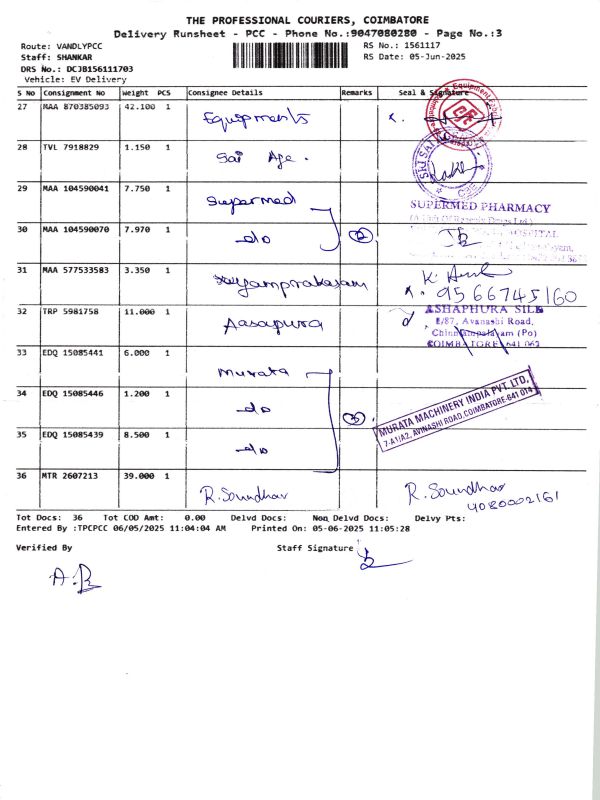 THE PROFESSIONAL COURIERS, COIMBATORE
Delivery Runsheet - PCC - Phone No.:9047080280 - Page No.:3
Route: VANDLYPCC
RS No.: 1561117
Staff: SHANKAR
RS Date: 05-Jun-2025
DRS No.: DCJB156111703
Vehicle: EV Delivery
S No Consignment No Weight PCS Consignee Details Remarks Seal & Signature
27 MAA 870385093 42.100 1 Equipments
28 TVL 7918829 1.150 1 Sai Age.
29 MAA 104590041 7.750 1 Supermed
SUPERMED PHARMACY
30 MAA 104590070 7.970 1 do 2
31 MAA 577533583 3.350 1 Jeyamprakasam
9566745160
32 TRP 5981758 11.000 1 Aasapura
ASHAPHURA SILK
E/87, Avanashi Road,
Chinniampalayam (Po)
COIMBATORE 641 062
33 EDQ 15085441 6.000 1 Murata
34 EDQ 15085446 1.200 1 do 3
MURATA MACHINERY INDIA PVT. LTD.
7-A1/A2, AVINASHI ROAD, COIMBATORE-641 014
35 EDQ 15085439 8.500 1 do
36 MTR 2607213 39.000 1 R. Soundhar R. Soundhar
4080002161
Tot Docs: 36 Tot COD Amt: 0.00 Delvd Docs: Non Delvd Docs: Delvy Pts:
Entered By :TPCPCC 06/05/2025 11:04:04 AM Printed On: 05-06-2025 11:05:28
Verified By Staff Signature :
A.R